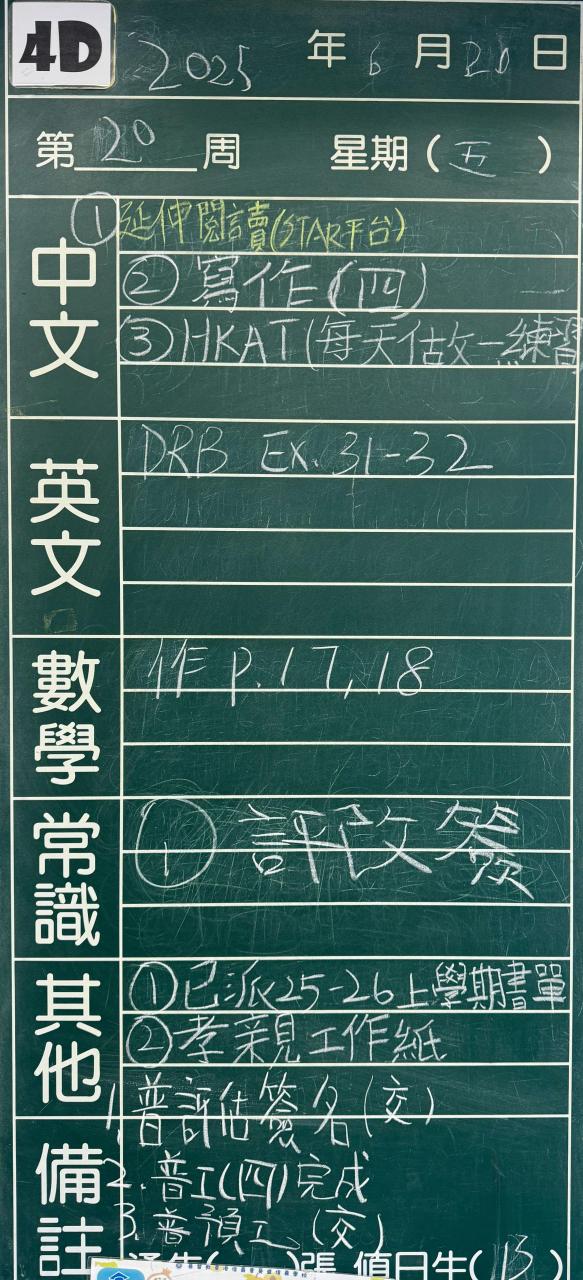 4D 2025年6月20日
第20周 星期(五)
中文
①延伸閱讀(STAR平台)
②寫作(四)
③HKAT(每天估文一練習
英文
DRB Ex. 31-32
數學
作 P.17,18
常識
①評改簽
其他
①已派25-26上學期書單
②孝親工作紙
1.普評估簽名(交)
備註
2.普工(四)完成
3.普預工(交)
通告( )張 值日生(13)